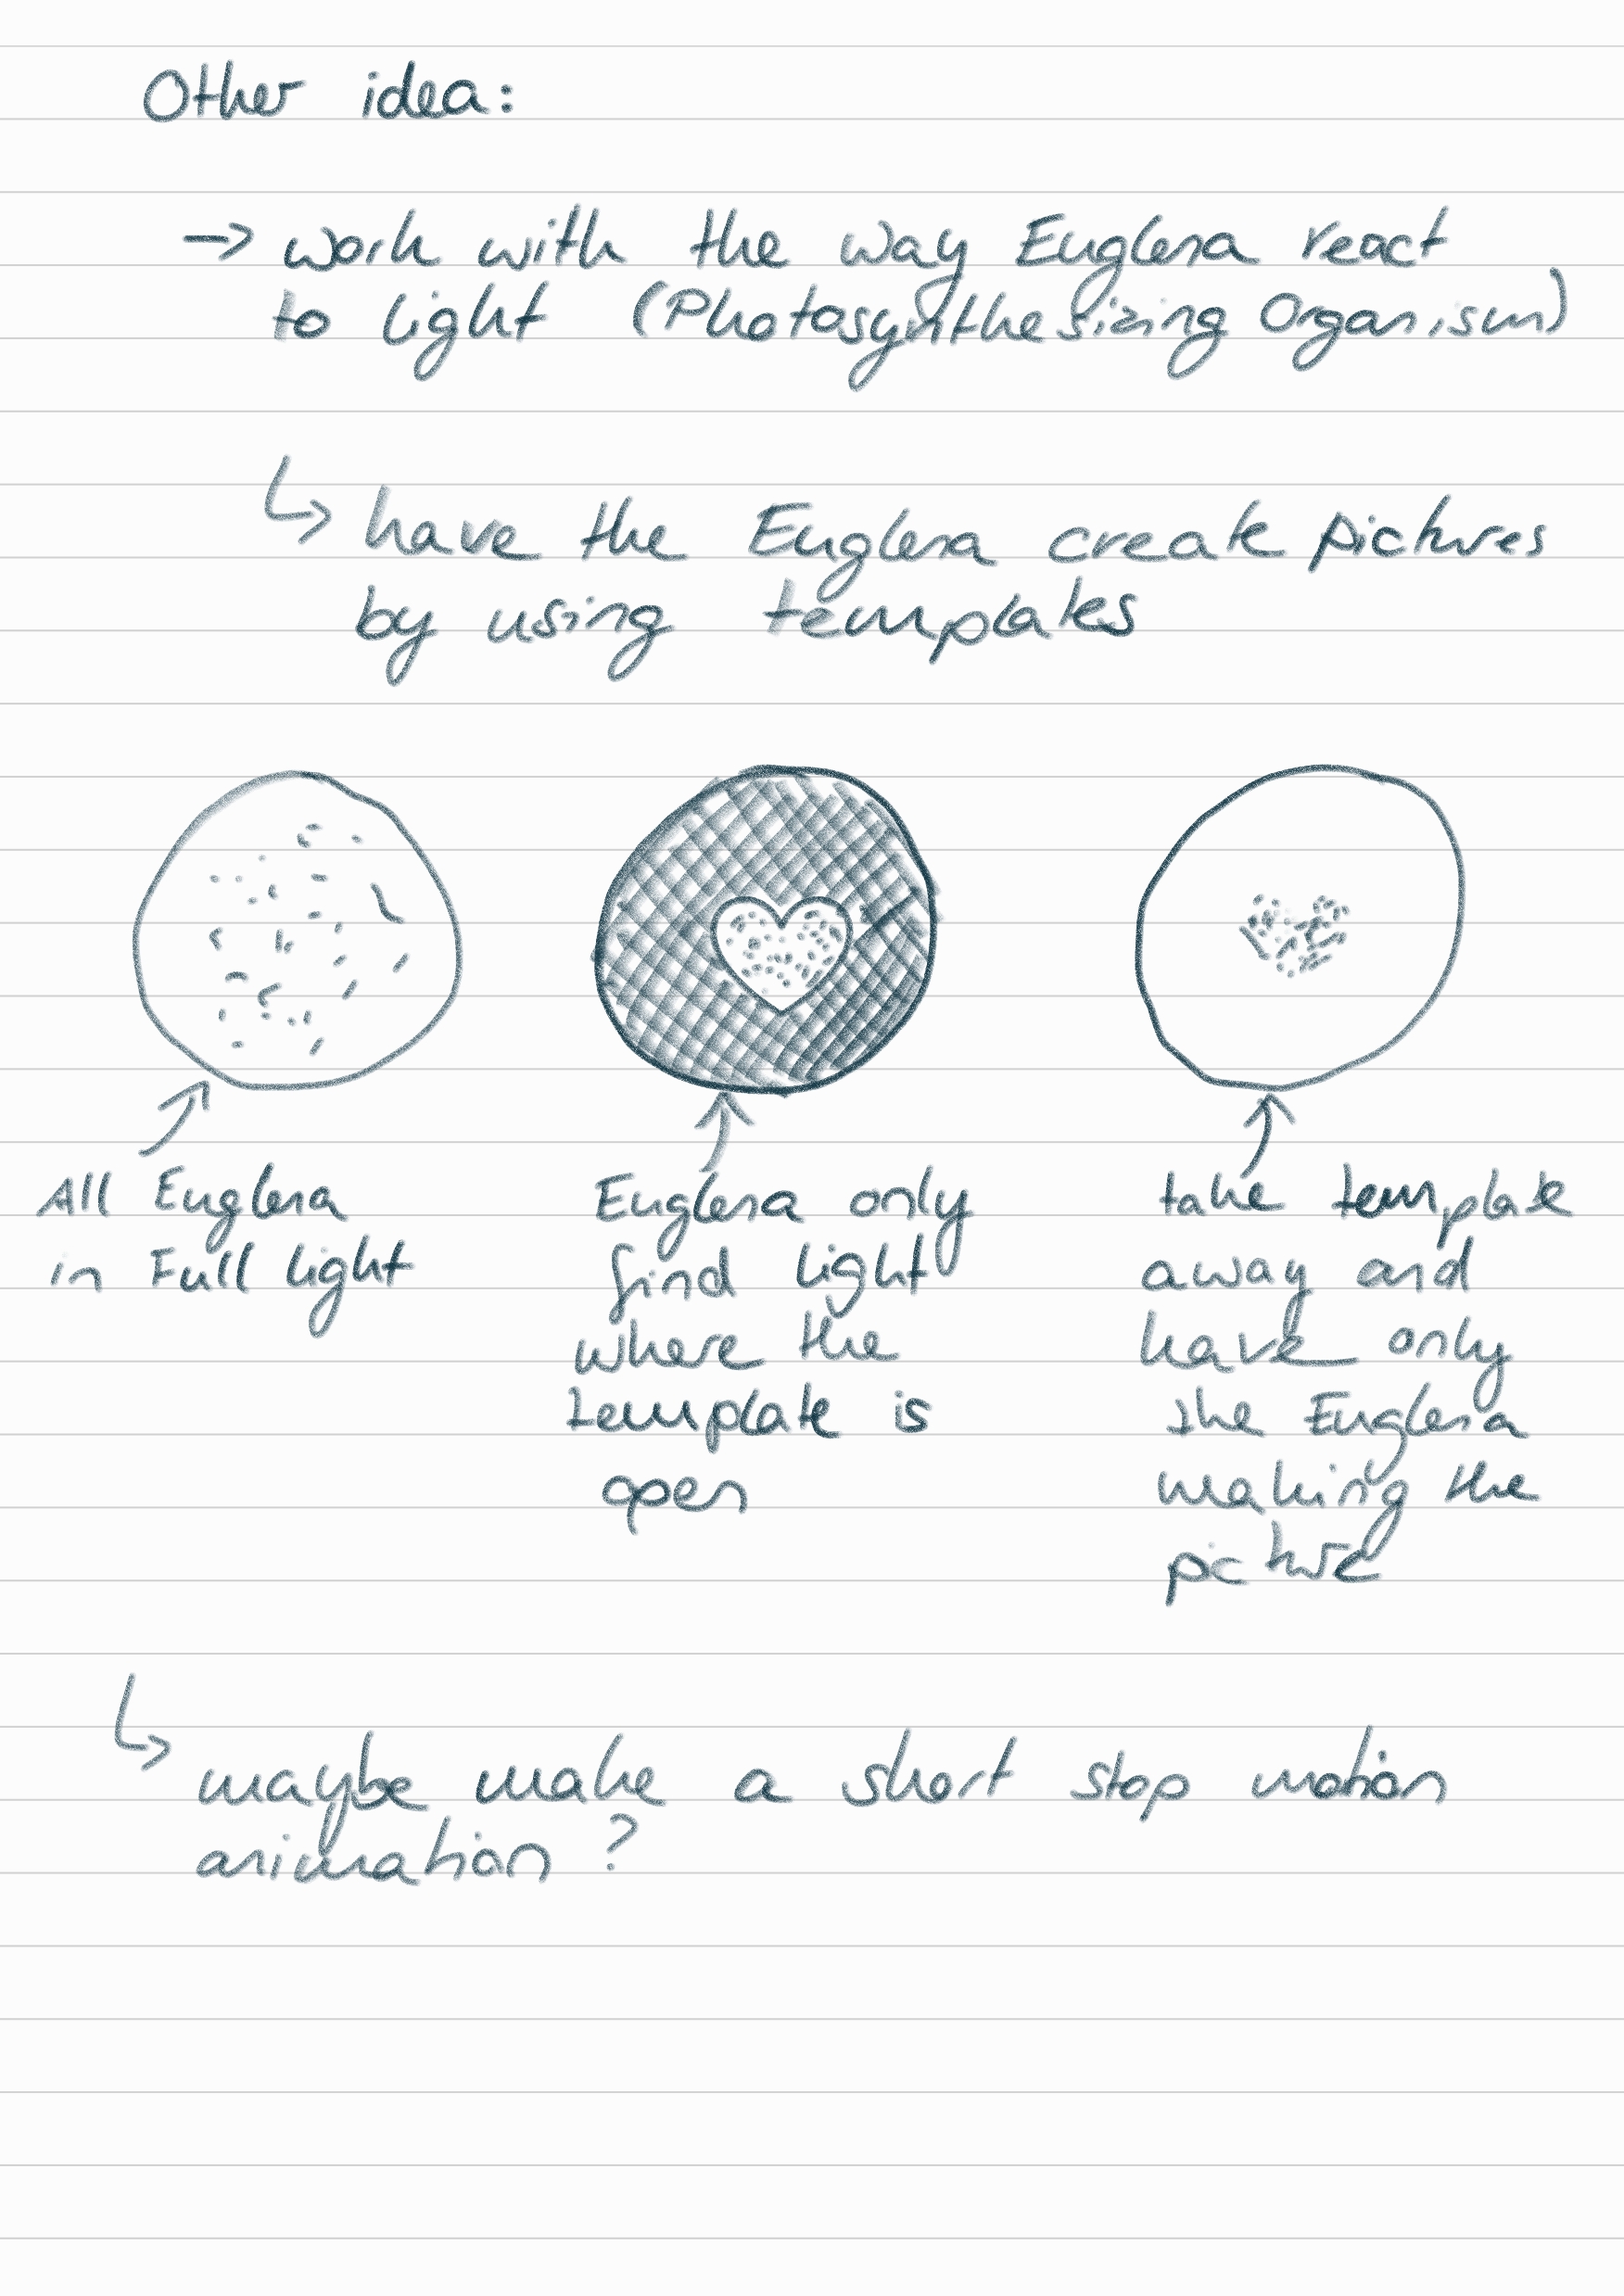 Other idea:
→ work with the way Euglena react
to light (Photosynthesizing Organism)
↳ have the Euglena create pictures
by using templates
All Euglena
in Full light
Euglena only
find light
where the
template is
open
take template
away and
have only
the Euglena
making the
picture
↳ maybe make a short stop motion
animation?